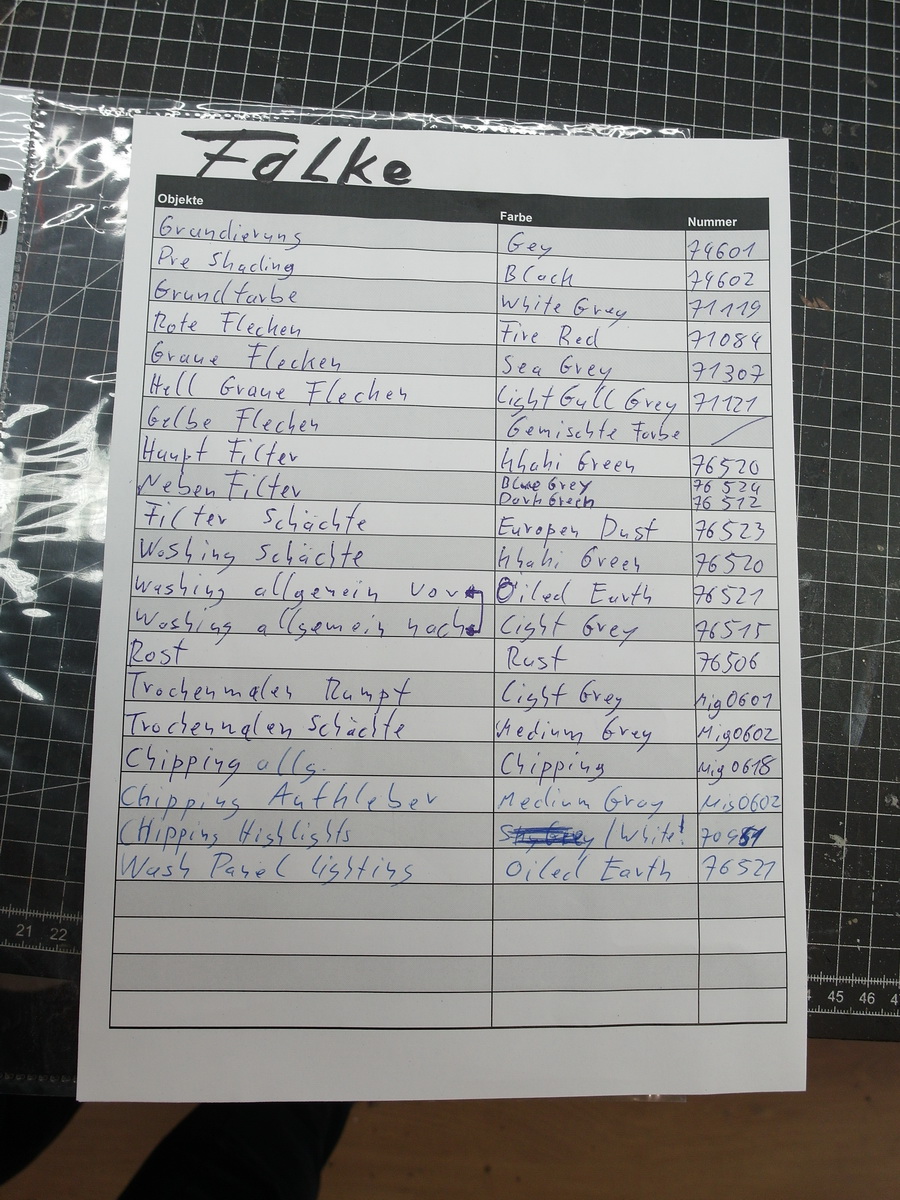 Falke
Objekte Farbe Nummer
Grundierung Gey 74601
Pre Shading Black 74602
Grundfarbe White Grey 71119
Rote Flecken Fire Red 71084
Graue Flecken Sea Grey 71307
Hell Graue Flecken Light Gull Grey 71121
Gelbe Flecken Gemischte Farbe /
Haupt Filter Khaki Green 76520
Neben Filter Blue Grey 76 524
Dark Green 76 512
Filter Schächte Europen Dust 76523
Washing Schächte Khaki Green 76520
Washing allgemein vor Oiled Earth 76521
Washing allgemein nach Light Grey 76515
Rost Rust 76506
Trockenmalen Rumpf Light Grey Mig0601
Trockenmalen Schächte Medium Grey Mig0602
Chipping allg. Chipping Mig0618
Chipping Aufkleber Medium Gray Mig0602
CHipping Highlights /White! 70951
Wash Panel Lighting Oiled Earth 76521
21 22
45 46